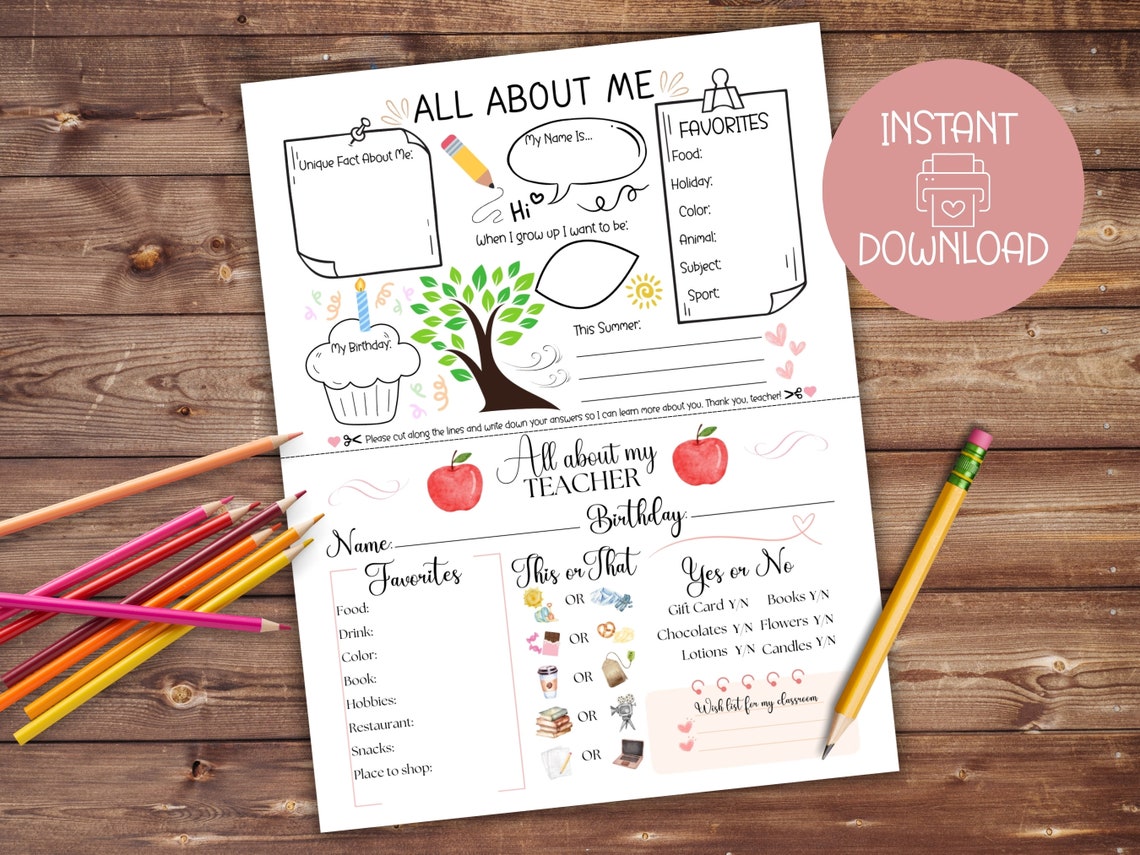 ALL ABOUT ME
Unique Fact About Me:
My Name Is...
Hi
When I grow up I want to be:
FAVORITES
Food:
Holiday:
Color:
Animal:
Subject:
Sport:
My Birthday:
This Summer:
Please cut along the lines and write down your answers so I can learn more about you. Thank you, teacher!
All about my
TEACHER
Name: Birthday:
Favorites
Food:
Drink:
Color:
Book:
Hobbies:
Restaurant:
Snacks:
Place to shop:
This or That
OR
OR
OR
OR
OR
Yes or No
Gift Card Y/N Books Y/N
Chocolates Y/N Flowers Y/N
Lotions Y/N Candles Y/N
Wish list for my classroom
INSTANT
DOWNLOAD